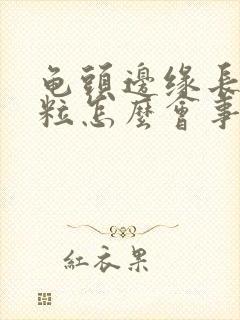 龟頭邊缘長
粒怎麼會事
紅衣果